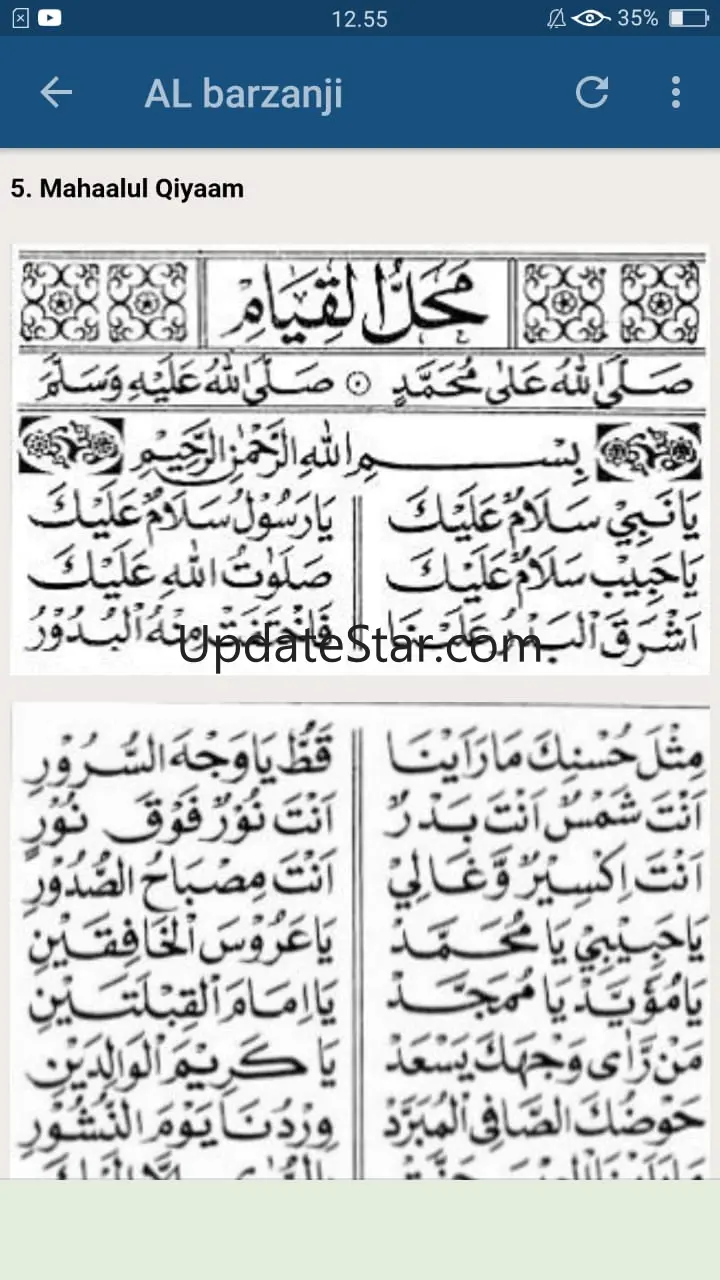 12.55
35%
AL barzanji
5. Mahaalul Qiyaam
مَحَلُّ الْقِيَامِ
صَلَّى اللهُ عَلٰى مُحَمَّدٍ ۞ صَلَّى اللهُ عَلَيْهِ وَسَلَّمَ
بِسْمِ اللهِ الرَّحْمٰنِ الرَّحِيْمِ
يَا نَبِيْ سَلَامٌ عَلَيْكَ يَا رَسُوْلُ سَلَامٌ عَلَيْكَ
يَا حَبِيْب سَلَامٌ عَلَيْكَ صَلَوٰتُ اللهِ عَلَيْكَ
اَشْرَقَ الْبَدْرُ عَلَيْنَا فَاخْتَفَتْ مِنْهُ الْبُدُوْرُ
UpdateStar.com
مِثْلَ حُسْنِكَ مَا رَاَيْنَا قَطُّ يَا وَجْهَ السُّرُوْرِ
اَنْتَ شَمْسٌ اَنْتَ بَدْرٌ اَنْتَ نُوْرٌ فَوْقَ نُوْرٍ
اَنْتَ اِكْسِيْرٌ وَّغَالِيْ اَنْتَ مِصْبَاحُ الصُّدُوْرِ
يَا حَبِيْبِيْ يَا مُحَمَّدْ يَا عَرُوْسَ الْخَافِقَيْنِ
يَا مُؤَيَّدْ يَا مُمَجَّدْ يَا اِمَامَ الْقِبْلَتَيْنِ
مَنْ رَّاٰى وَجْهَكَ يَسْعَدْ يَا كَرِيْمَ الْوَالِدَيْنِ
حَوْضُكَ الصَّافِى الْمُبَرَّدْ وِرْدُنَا يَوْمَ النُّشُوْرِ